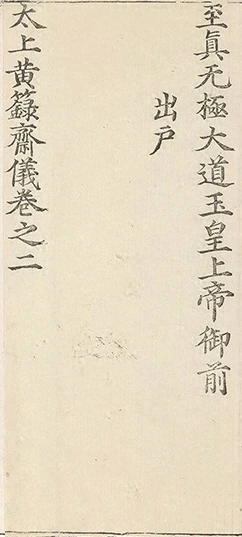 至真无極大道玉皇上帝御前
出户
太上黄籙齋儀卷之二